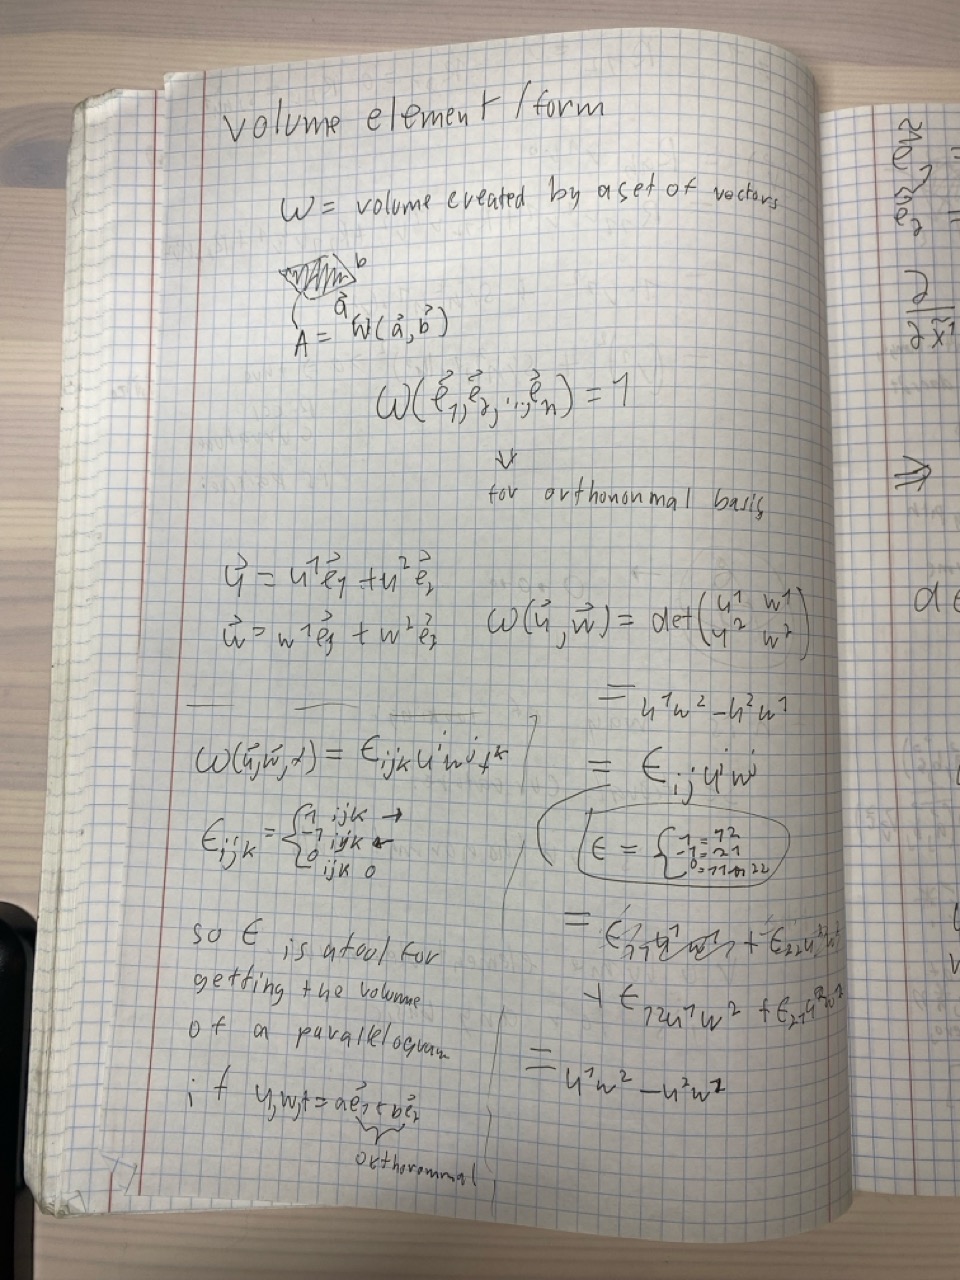 volume element/form
ω = volume created by a set of vectors
b
a⃗
A = ω(a⃗, b⃗)
ω(e⃗₁, e⃗₂, ..., e⃗ₙ) = 1
↓
for orthonormal basis
u⃗ = u¹e⃗₁ + u²e⃗₂
w⃗ = w¹e⃗₁ + w²e⃗₂
ω(u⃗, w⃗) = det(u¹ w¹
u² w²)
= u¹w² - u²w¹
= ϵᵢⱼuⁱwʲ
ϵ = { 1 = 12
-1 = 21
0 = 11 or 22
= ϵ₁₁u¹w¹ + ϵ₂₂u²w²
+ ϵ₁₂u¹w² + ϵ₂₁u²w¹
= u¹w² - u²w¹
ω(u⃗, w⃗, t) = ϵᵢⱼₖuⁱwʲtᵏ
ϵᵢⱼₖ = { 1 ijk →
-1 ijk ←
0 ijk 0
so ϵ is a tool for
getting the volume
of a parallelogram
if u, w, t = ae⃗₁ + be⃗₂
orthonormal